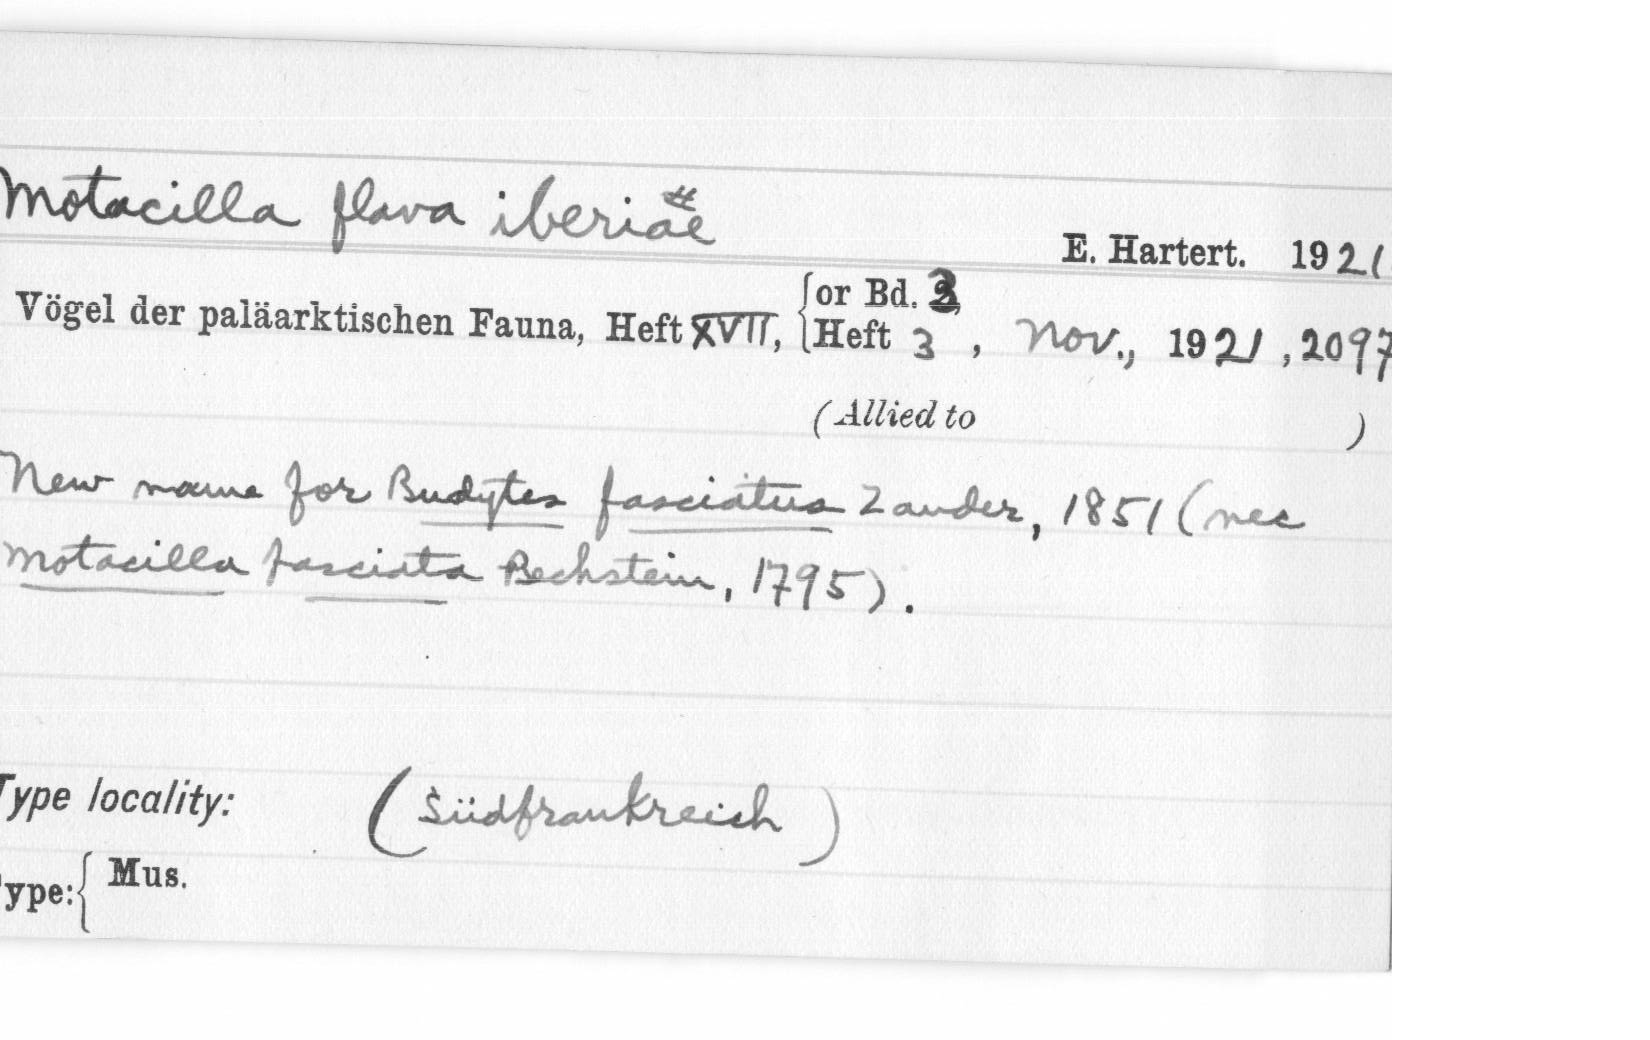 Motacilla flava iberiae #
E. Hartert. 1921.
Vögel der paläarktischen Fauna, Heft XVII, {or Bd. 3,
Heft 3, Nov., 1921, 2097
(Allied to )
New name for Budytes fasciatus Zander, 1851 (nec
Motacilla fasciata Bechstein, 1795).
Type locality: (Südfrankreich)
ype: { Mus.